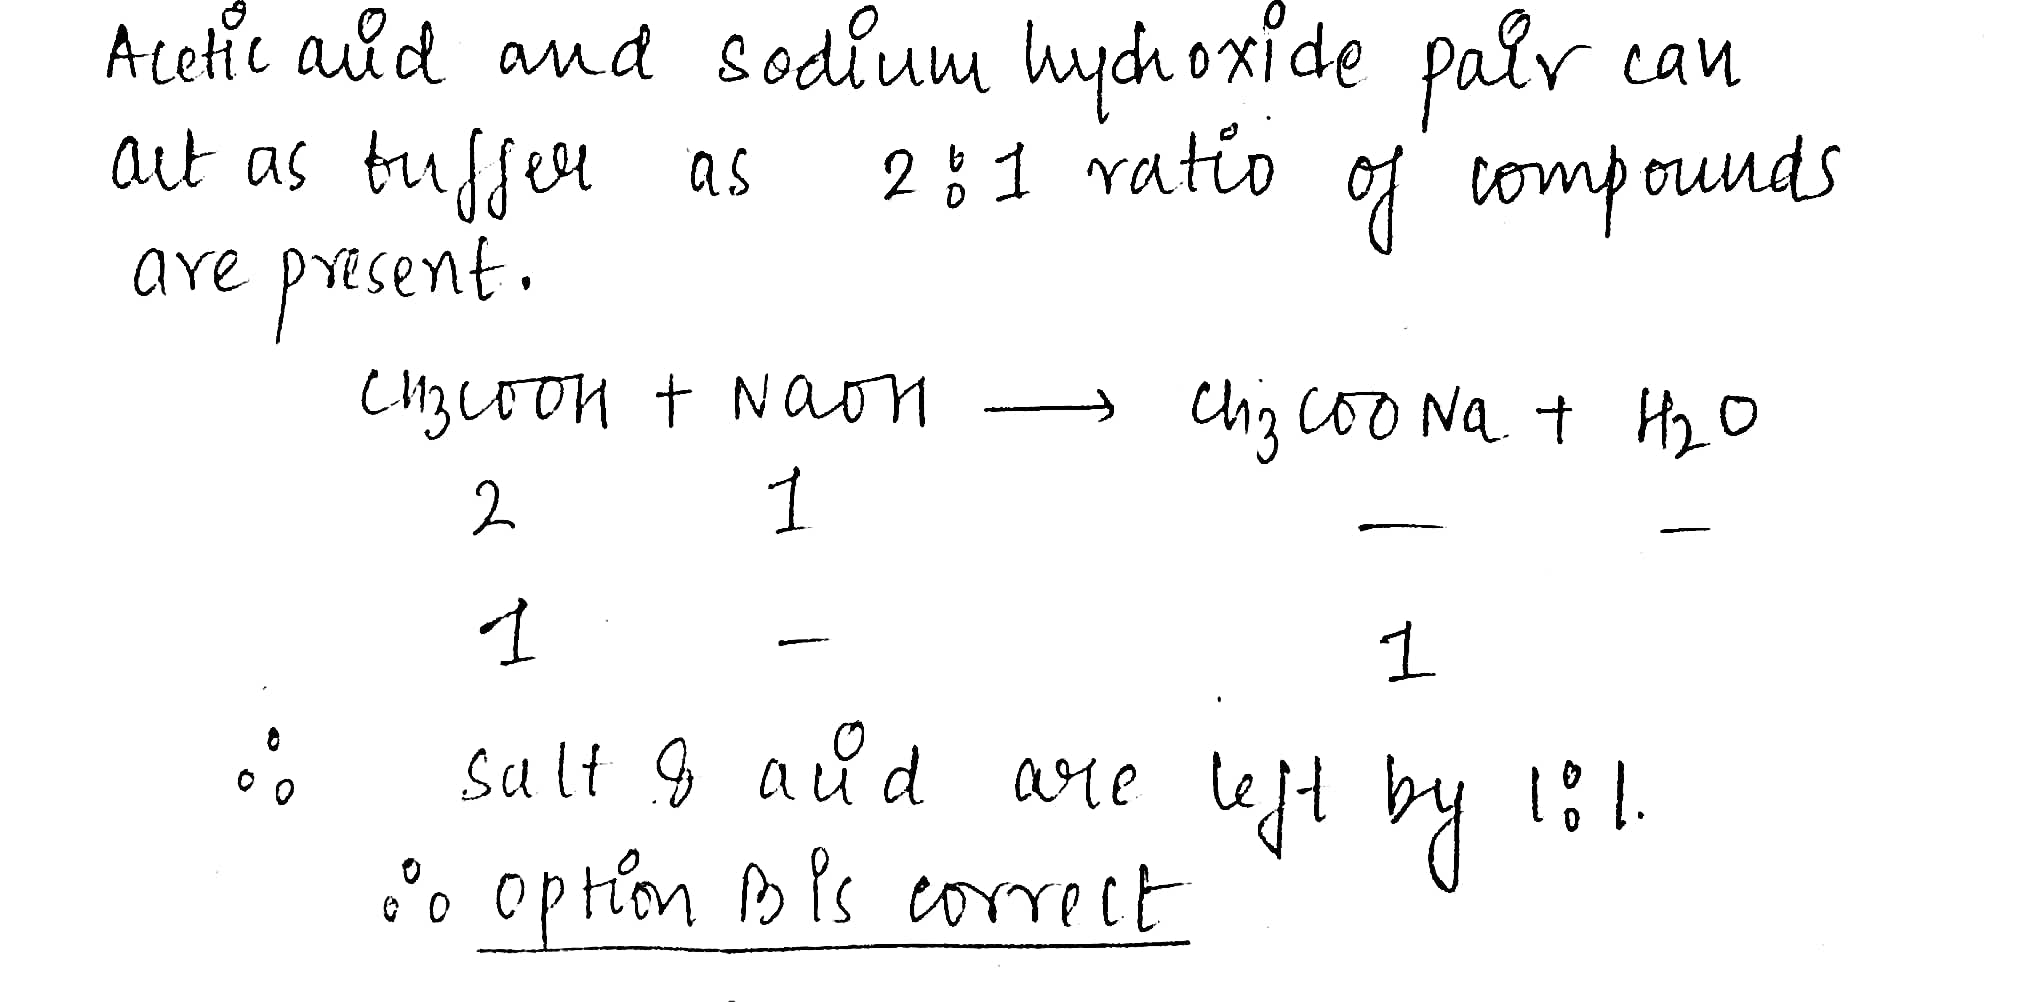 Acetic acid and sodium hydroxide pair can
act as buffer as 2:1 ratio of compounds
are present.
CH3COOH + NaOH → CH3COONa + H2O
2 1 — –
1 – 1
∴ salt & acid are left by 1:1.
∴ option B is correct